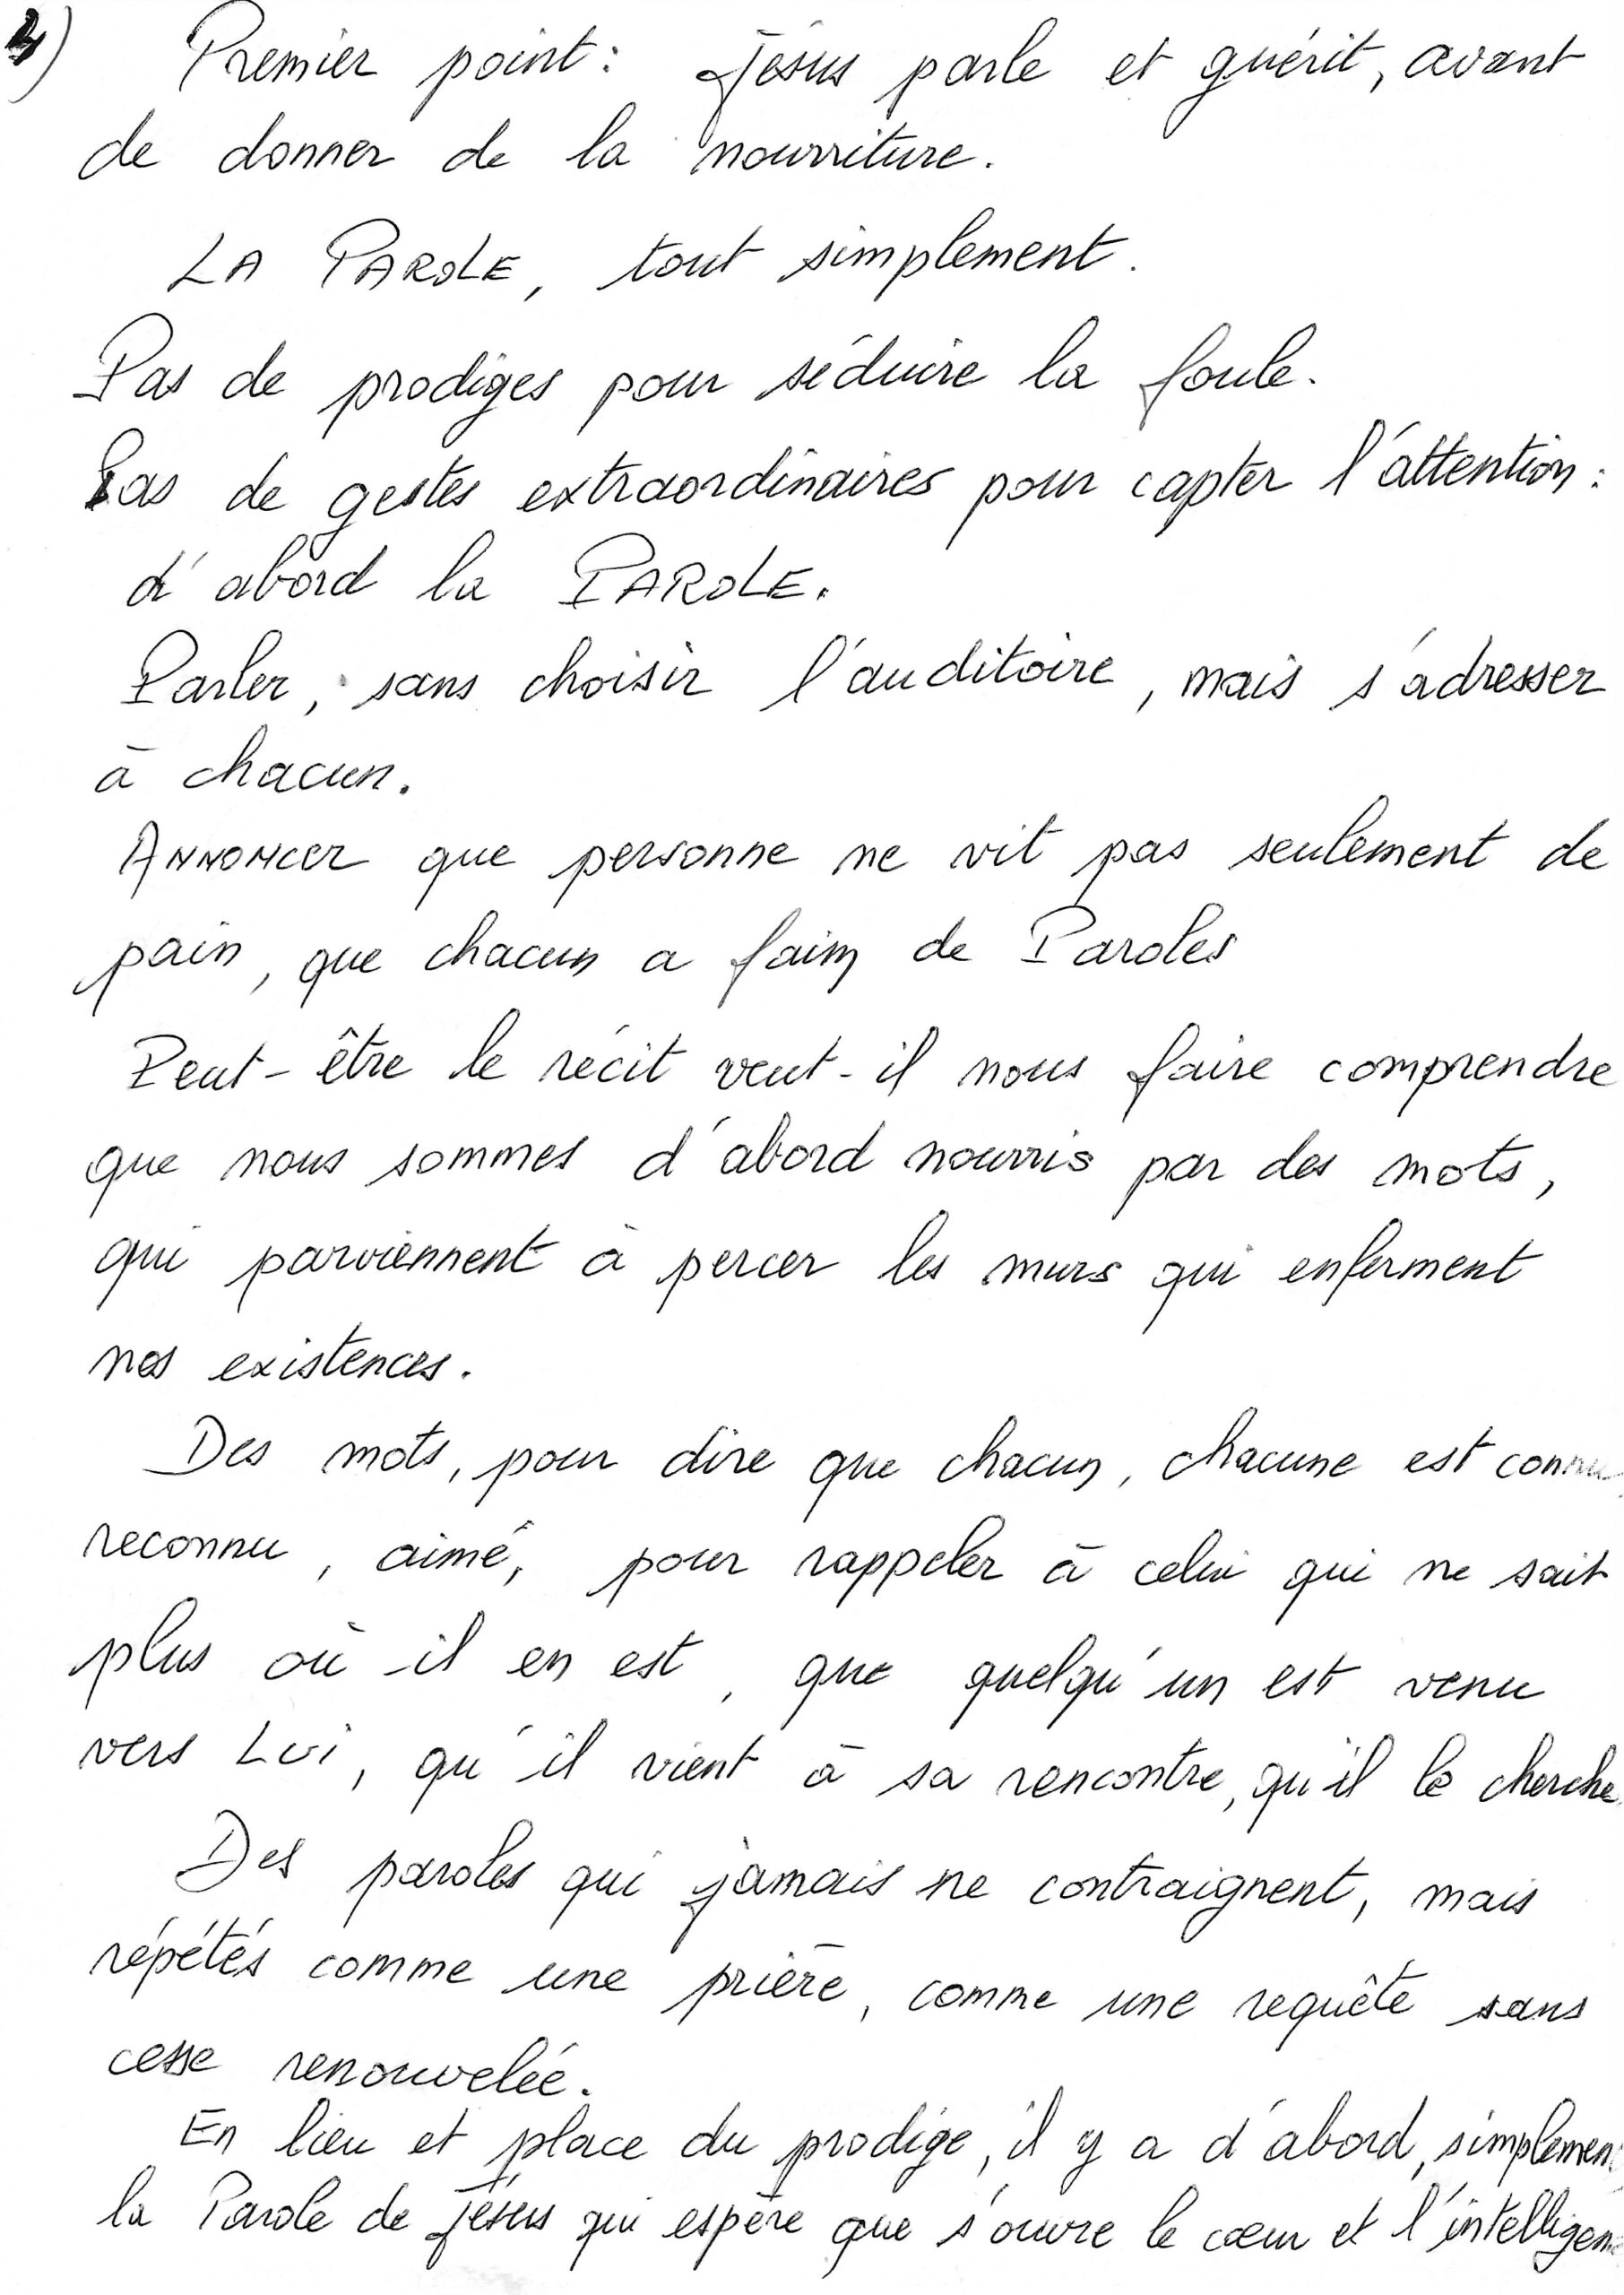 Premier point : Jésus parle et guérit, avant
de donner de la nourriture.
LA PAROLE, tout simplement.
Pas de prodiges pour séduire la foule.
Pas de gestes extraordinaires pour capter l'attention :
d'abord la PAROLE.
Parler, sans choisir l'auditoire, mais s'adresser
à chacun.
ANNONCER que personne ne vit pas seulement de
pain, que chacun a faim de Paroles
Peut-être le récit veut-il nous faire comprendre
que nous sommes d'abord nourris par des mots,
qui parviennent à percer les murs qui enferment
nos existences.
Des mots, pour dire que chacun, chacune est connu
reconnu, aimé, pour rappeler à celui qui ne sait
plus où il en est, que quelqu'un est venu
vers Lui, qu'il vient à sa rencontre, qu'il le cherche.
Des paroles qui jamais ne contraignent, mais
répétés comme une prière, comme une requête sans
cesse renouvelée.
En lieu et place du prodige, il y a d'abord, simplemen
la Parole de Jésus qui espère que s'ouvre le cœur et l'intelligen